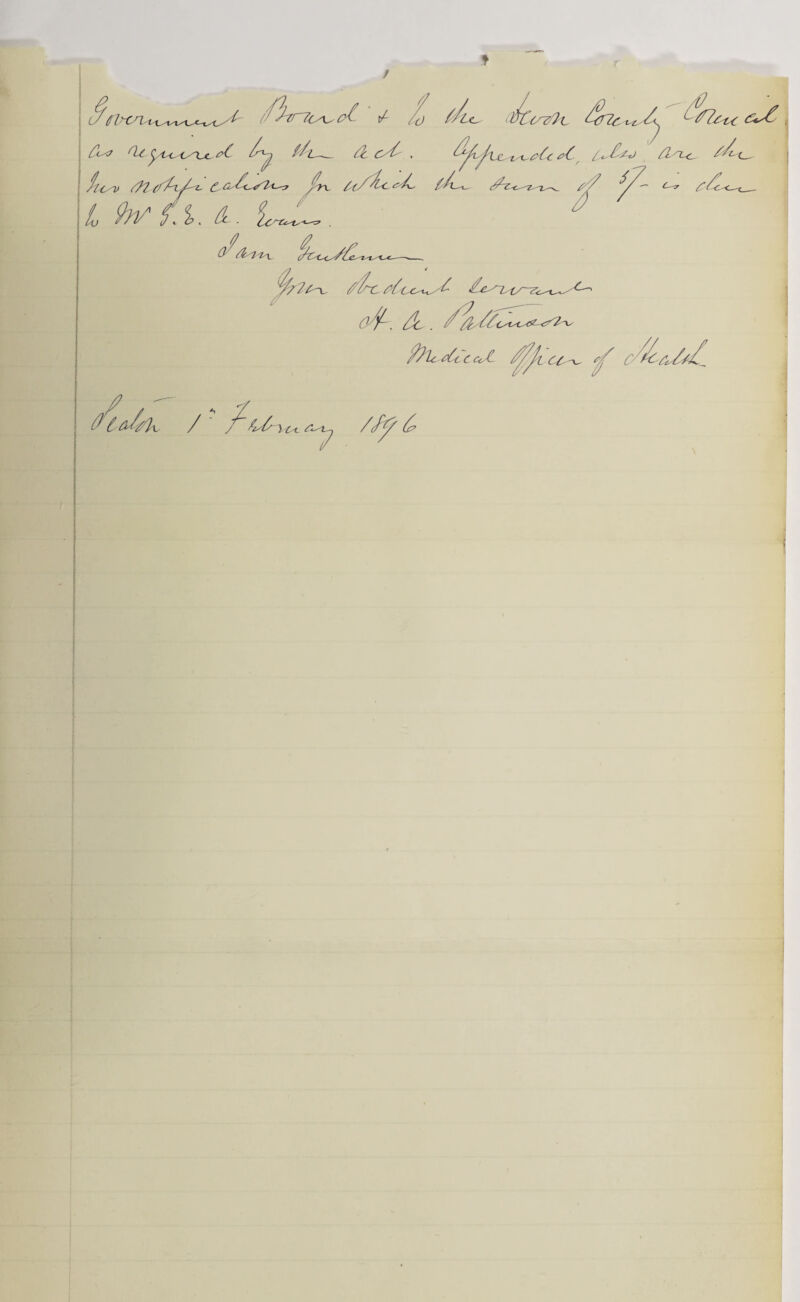 Government Board & to the Devon County Council
as required by the Act. Appended, also are the
two notifications for which the sum of 5/- is due
to Mr S. L. A.
I am Gentlemen
Your obedient Servant
H. A.
Medical Officer of Health
Seaton 1st February 1896